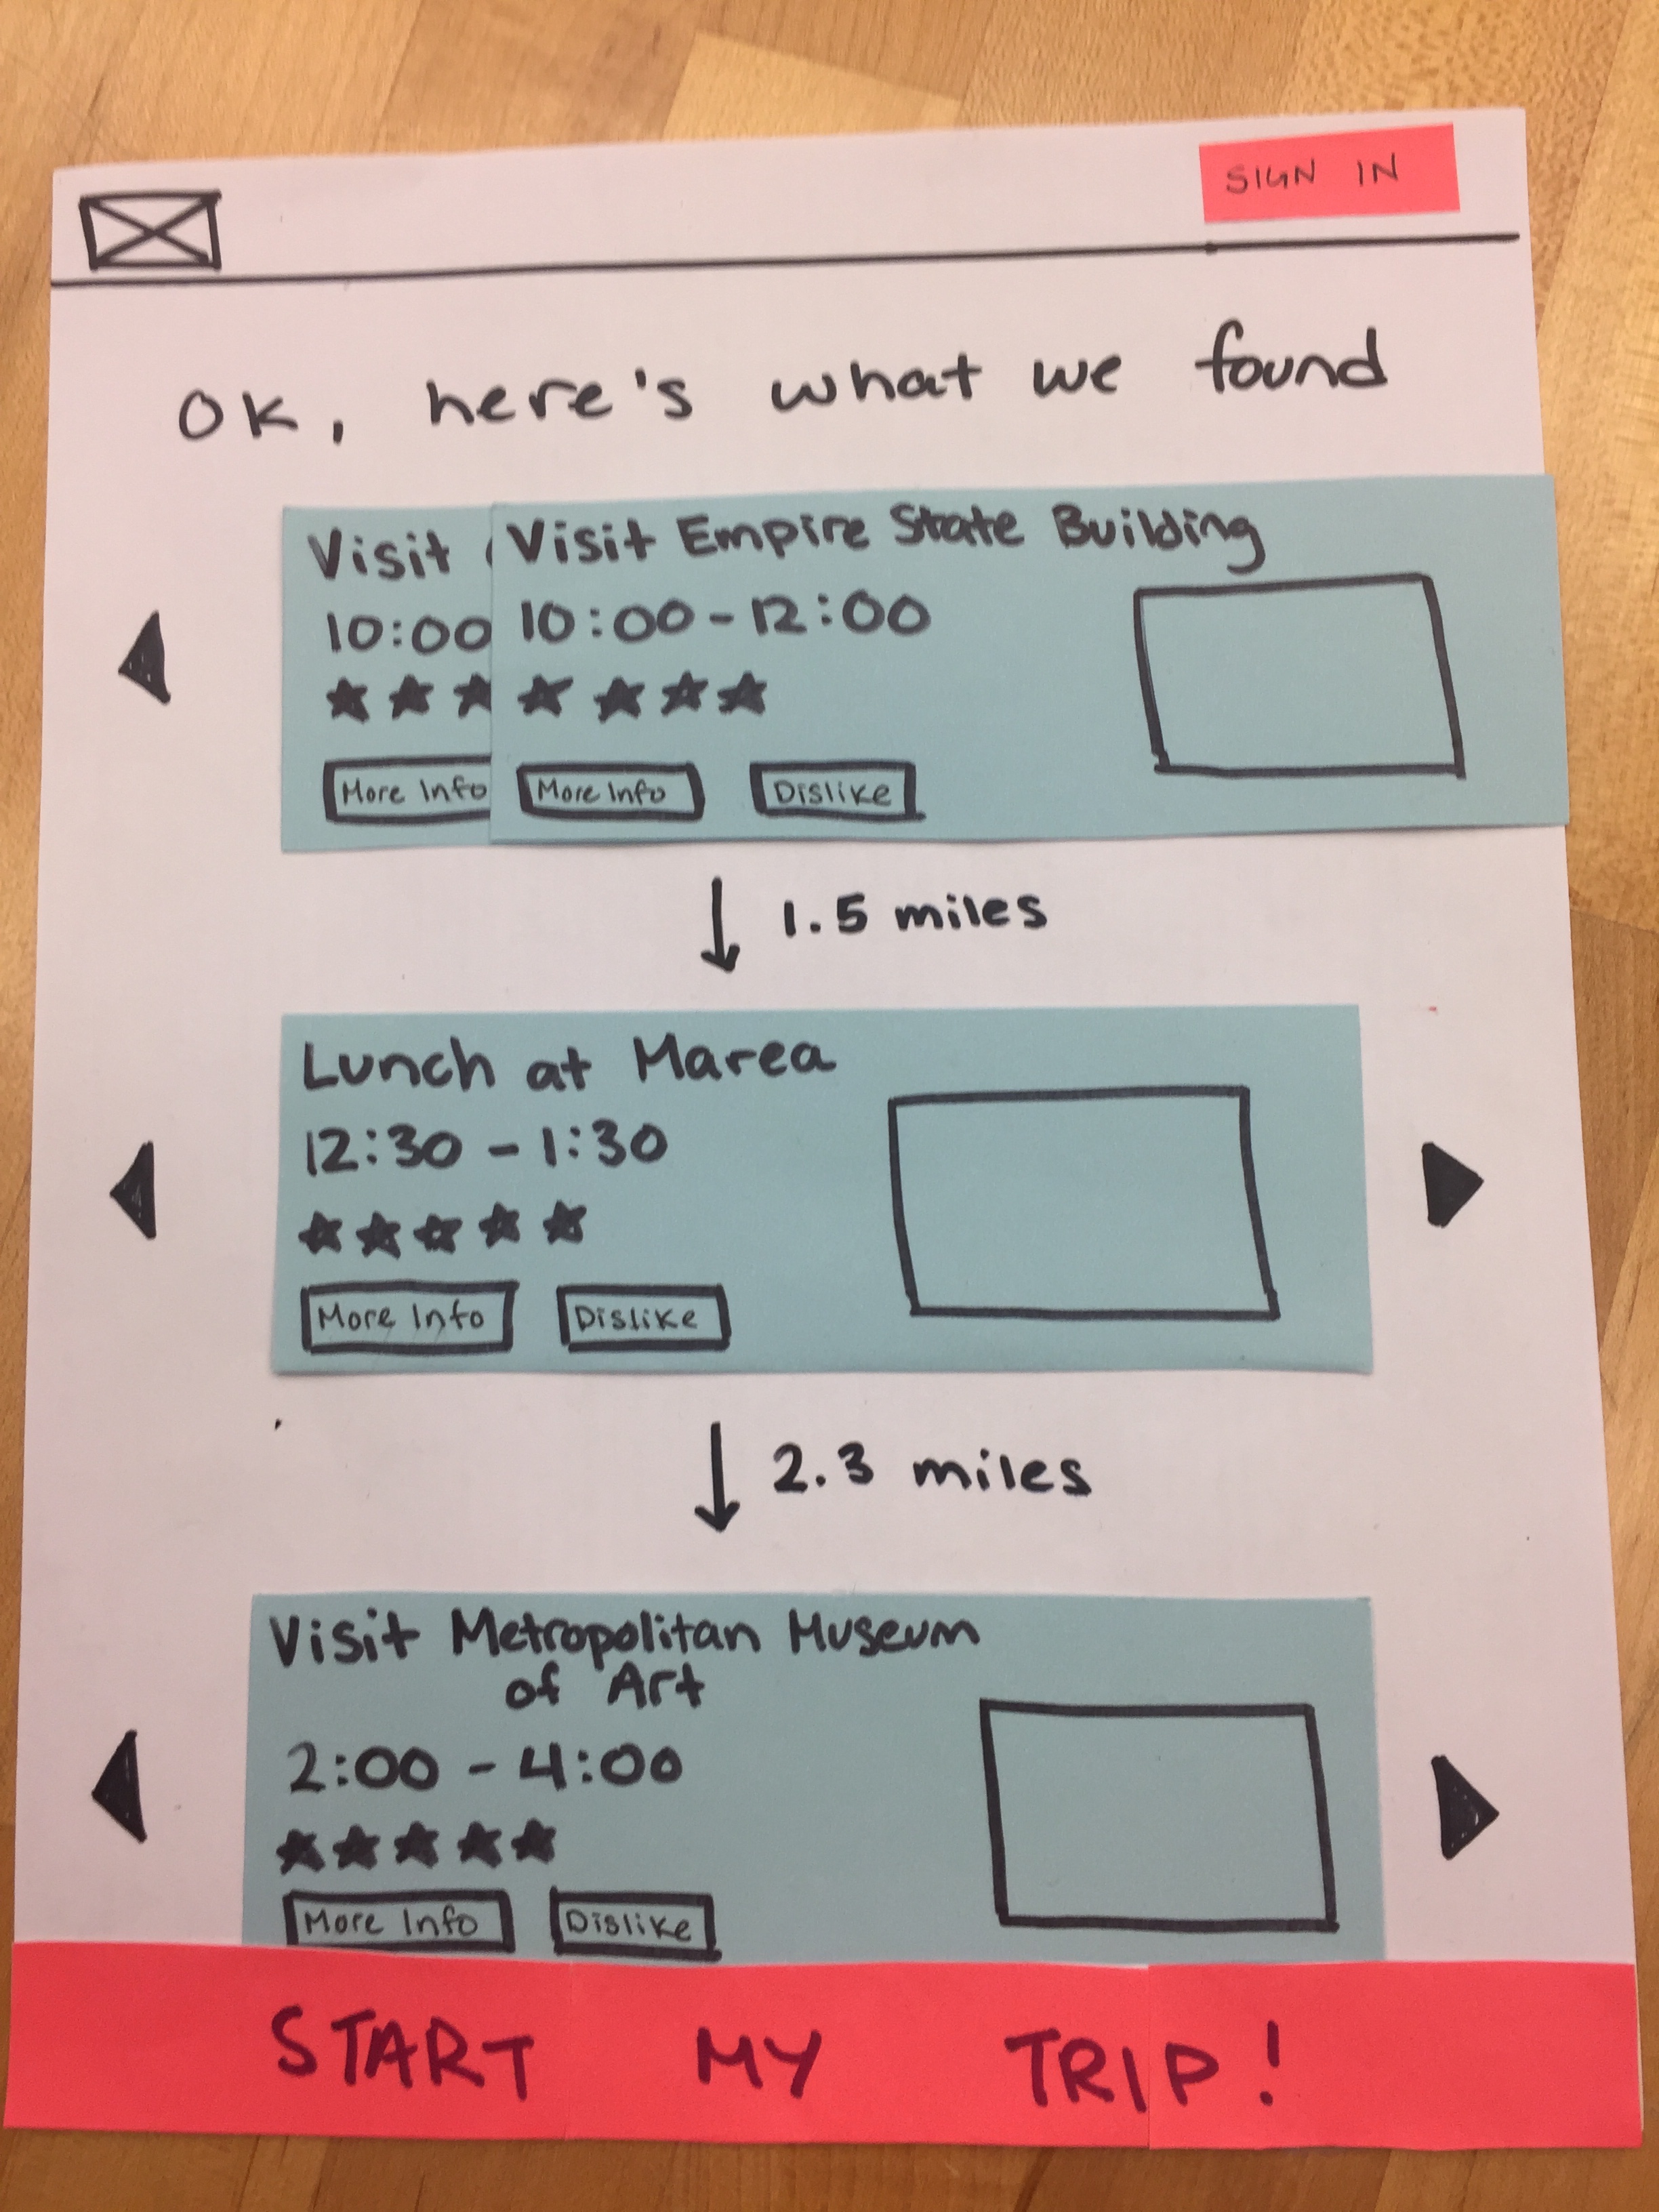 SIGN IN
OK, here's what we found
Visit
10:00
More Info
Visit Empire State Building
10:00-12:00
More Info
Dislike
1.5 miles
Lunch at Marea
12:30 - 1:30
More Info
Dislike
2.3 miles
Visit Metropolitan Museum
of Art
2:00 - 4:00
More Info
Dislike
START MY TRIP!